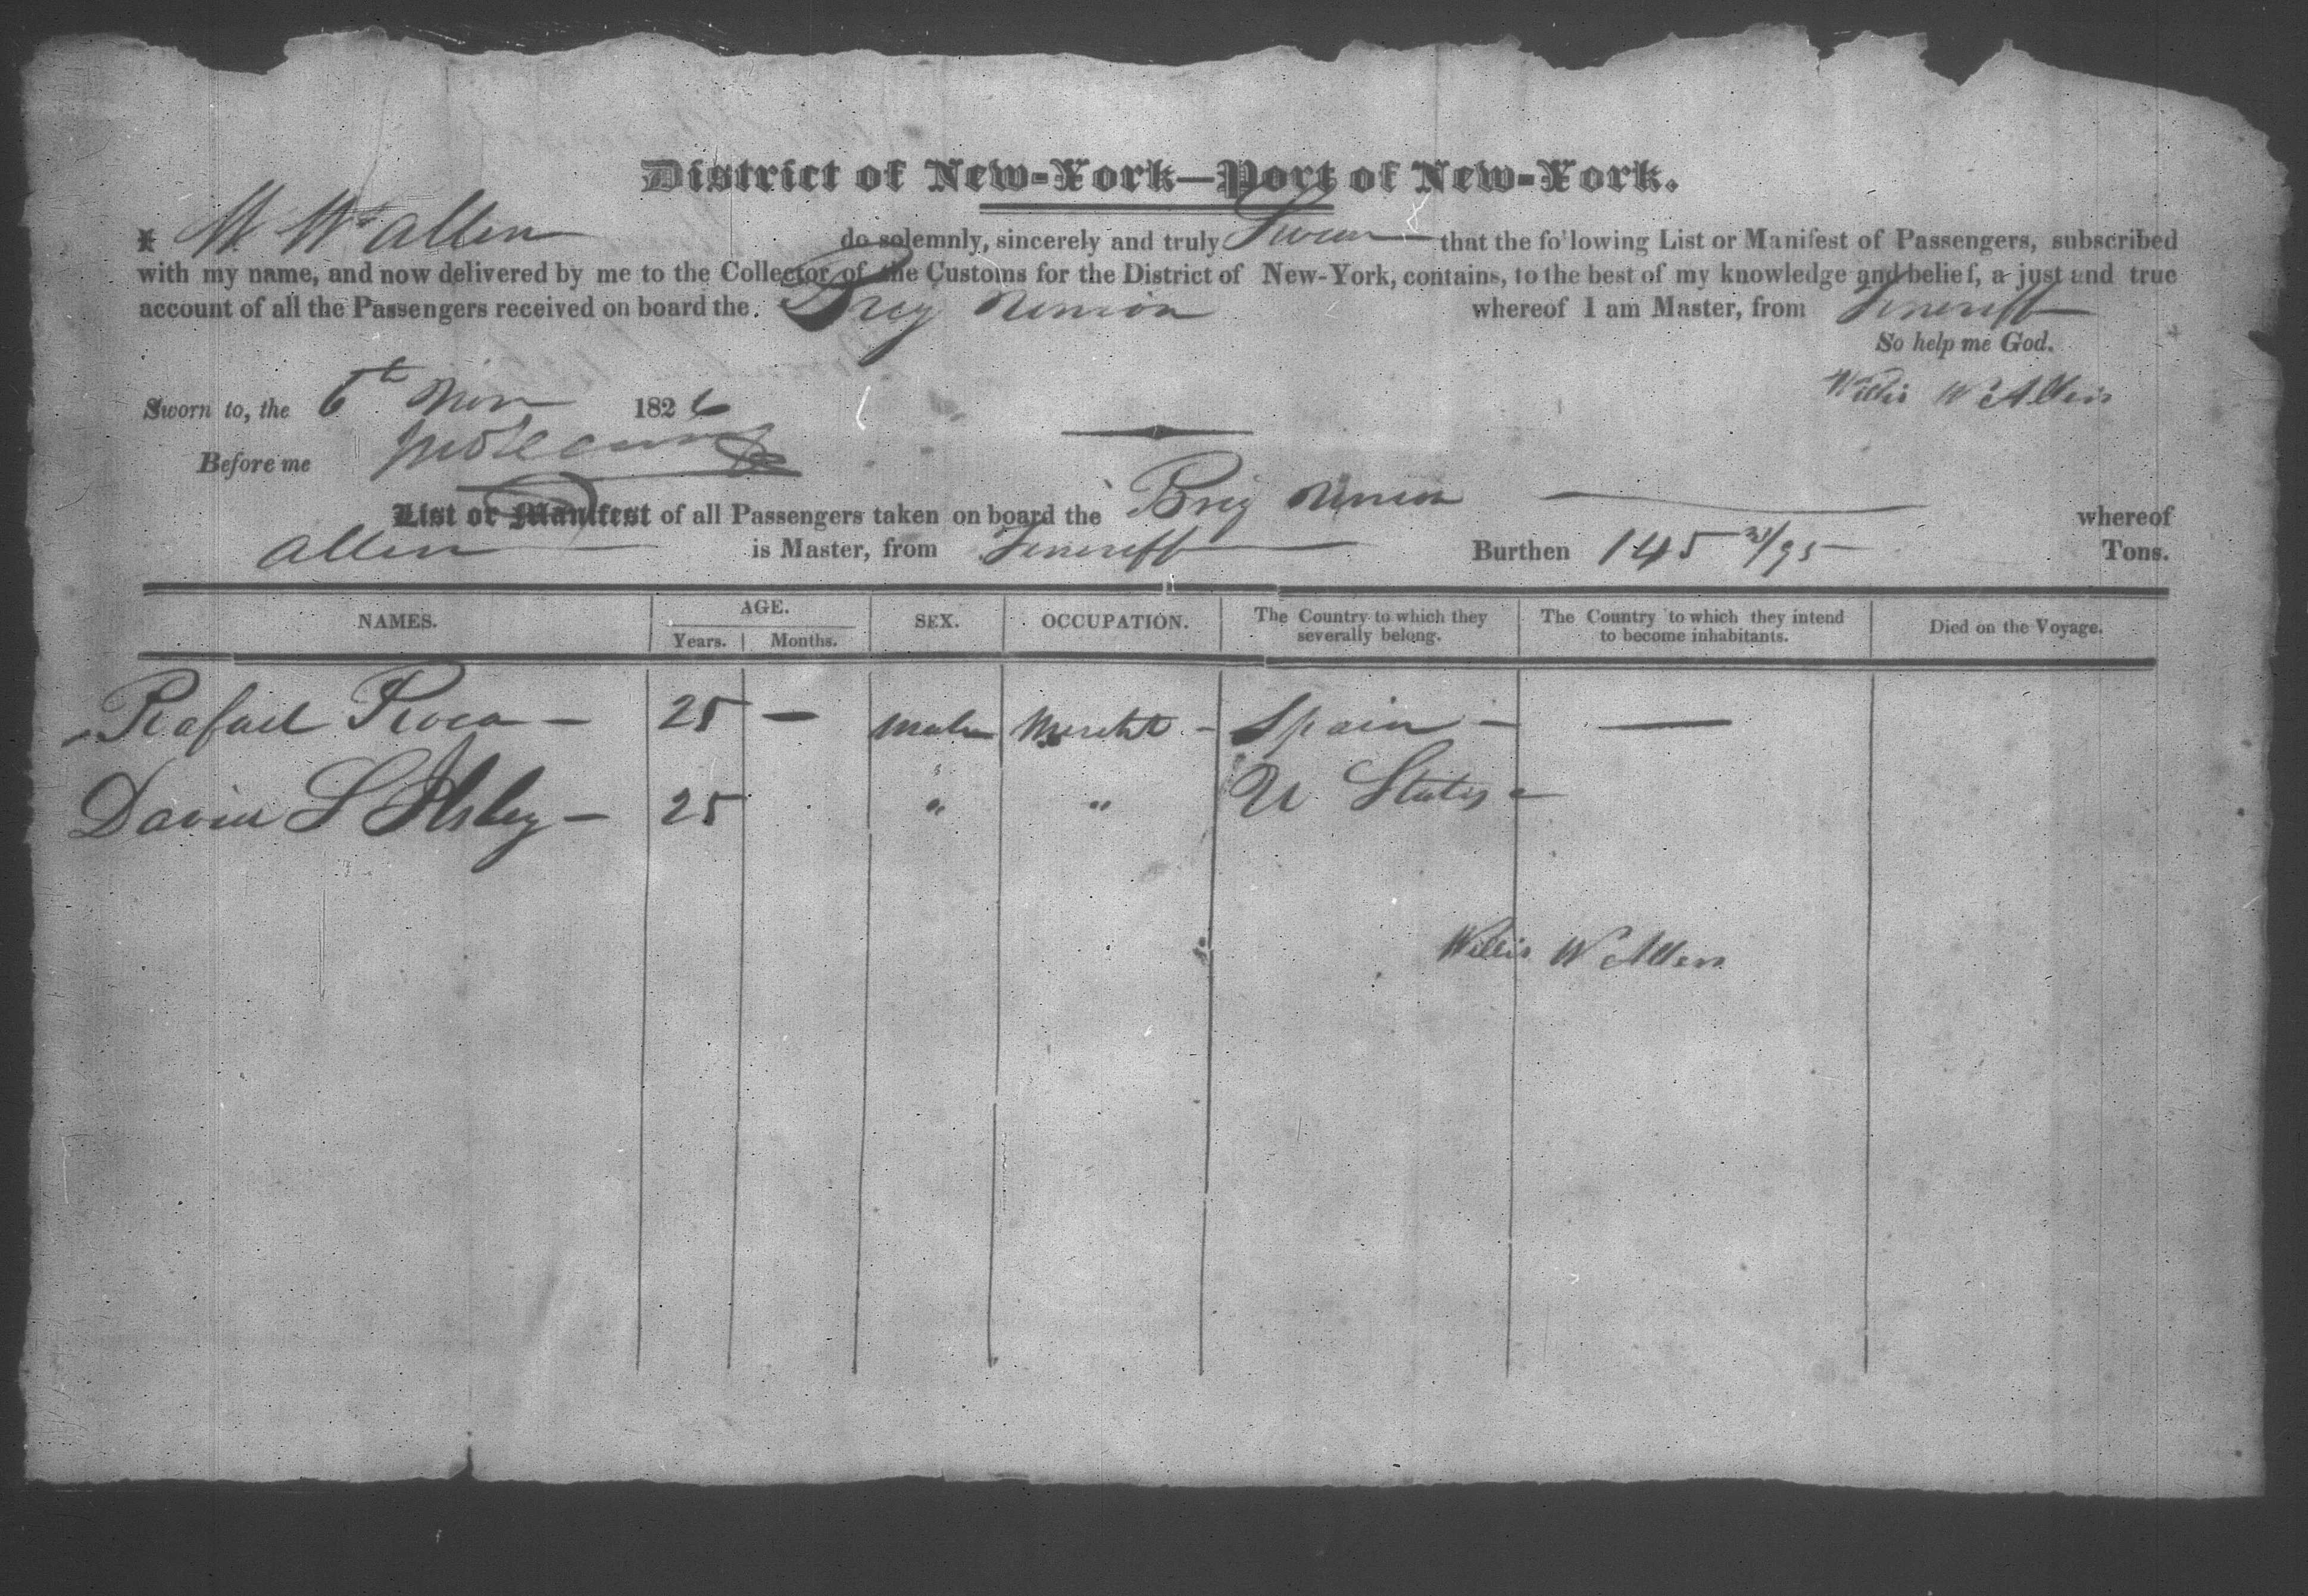 District of New-York—Port of New-York.
I W W Allen do solemnly, sincerely and truly Swear that the following List or Manifest of Passengers, subscribed
with my name, and now delivered by me to the Collector of the Customs for the District of New-York, contains, to the best of my knowledge and belief, a just and true
account of all the Passengers received on board the Brig Union whereof I am Master, from Teneriff
So help me God.
Sworn to, the 6th Nov 1826 Willis W Allen
Before me
List or Manifest of all Passengers taken on board the Brig Union whereof
Allen is Master, from Teneriff Burthen 145 /95 Tons.
NAMES. AGE. Years. Months. SEX. OCCUPATION. The Country to which they severally belong. The Country to which they intend to become inhabitants. Died on the Voyage.
Rafael Roca — 25 — Male Mercht — Spain — —
David S Ilsley — 25 " " U States —
Willis W Allen